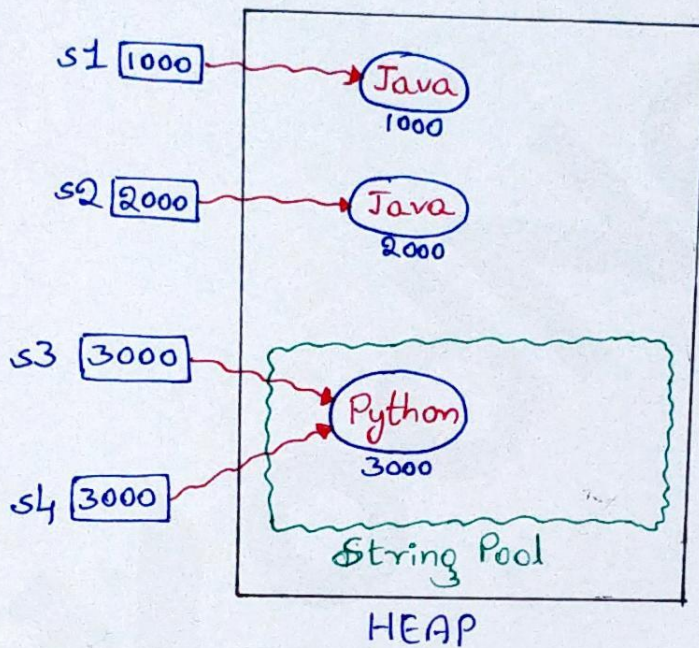 s1 1000 Java
1000
s2 2000 Java
2000
s3 3000
Python
3000
s4 3000
String Pool
HEAP